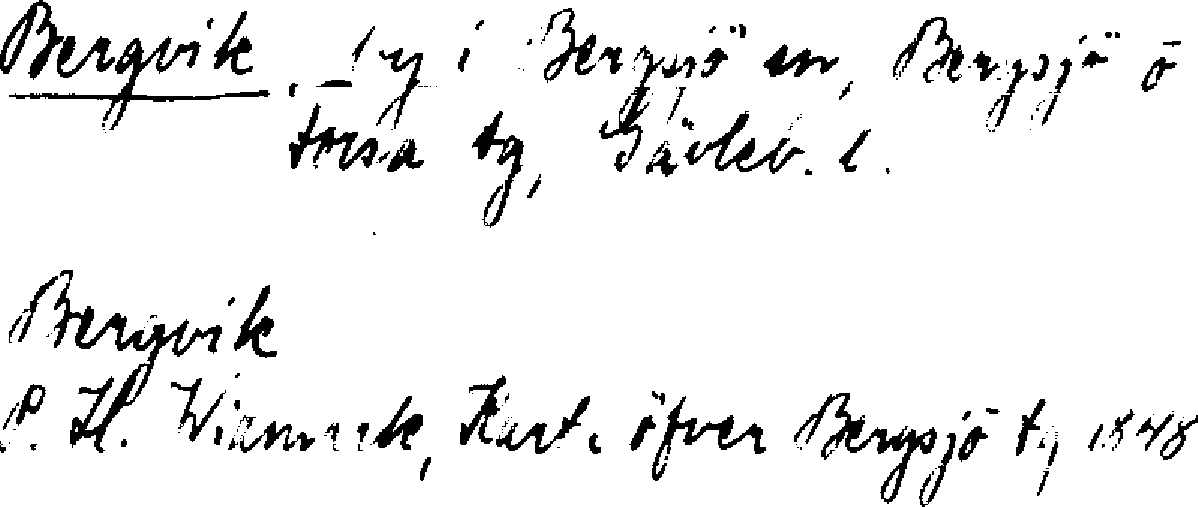 Bergvik. by i Bergsjö sn, Bergsjö o
Forsa tg, Gävleb. l.
Bergvik
P. H. Widmark, Karta öfver Bergsjö tg 1848